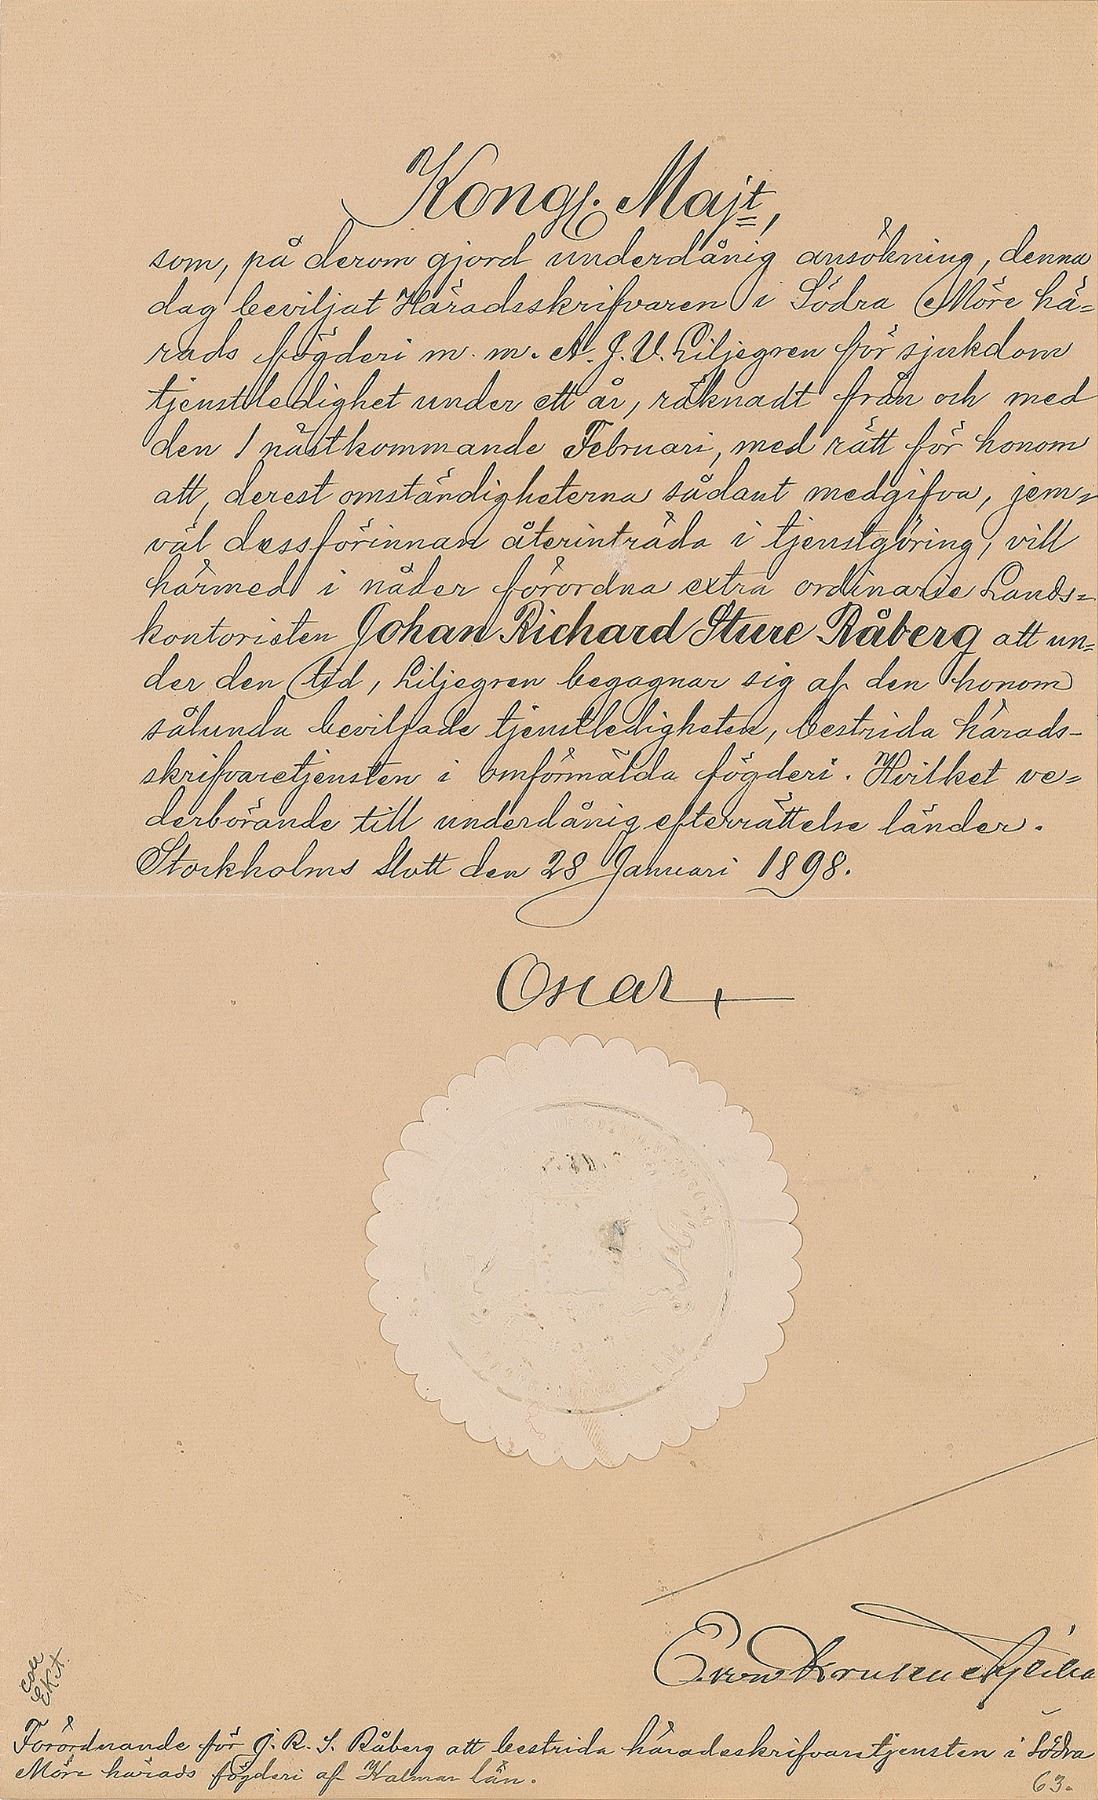 Kongl. Majt,
som, på derom gjord underdånig ansökning, denna
dag beviljat Häradsskrifvaren i Södra Möre hä=
rads fögderi m. m. A. J. V. Liljegren för sjukdom
tjenstledighet under ett år, räknadt från och med
den 1 nästkommande Februari, med rätt för honom
att, derest omständigheterna sådant medgifva, jem=
väl dessförinnan återinträda i tjenstgöring, vill
härmed i nåder förordna extra ordinarie Lands=
kontoristen Johan Richard Sture Råberg att un=
der den tid, Liljegren begagnar sig af den honom
sålunda beviljade tjenstledigheten, bestrida härads-
skrifvaretjensten i omförmälda fögderi. Hvilket ve=
derbörande till underdånig efterrättelse länder.
Stockholms Slott den 28 Januari 1898.
Oscar
Förordnande för J. R. S. Råberg att bestrida häradsskrifvaretjensten i Södra
Möre härads fögderi af Kalmar län.
63.